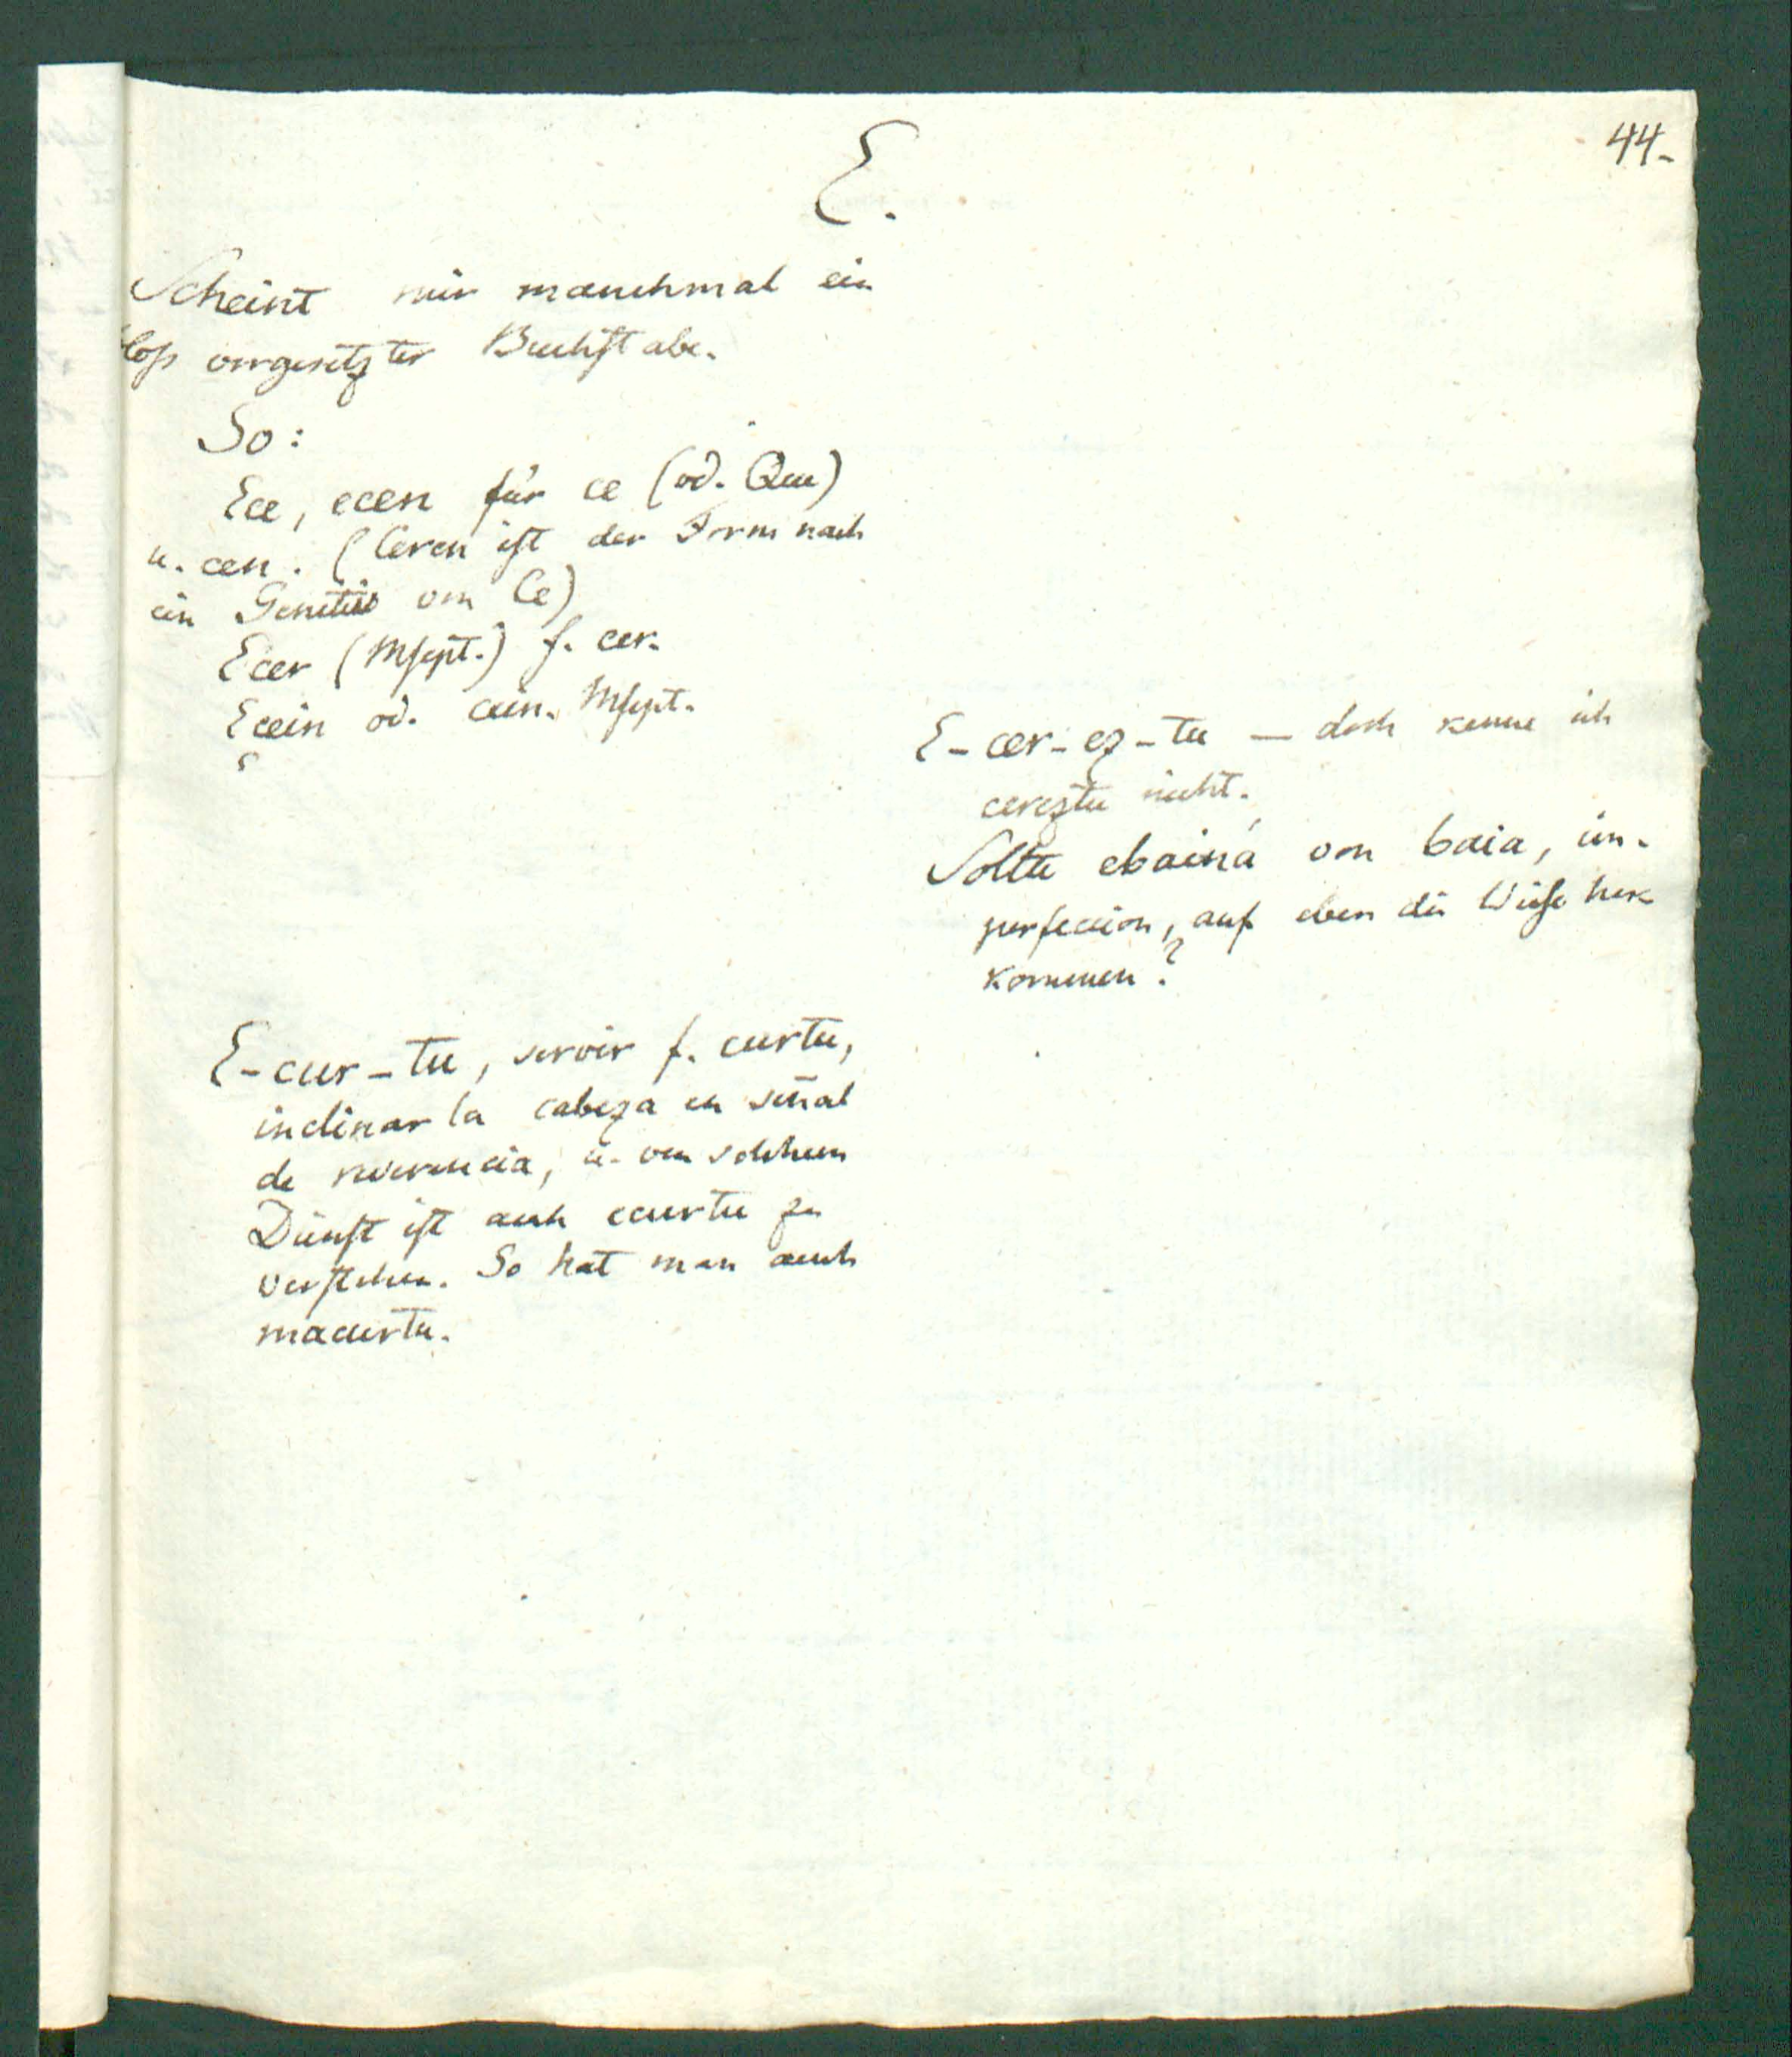 44.
E.
Scheint mir manchmal ein
bloß vorgesetzter Buchstabe.
So:
Ece, ecen für ce (od. Que)
u. cen. (Ceren ist der Form nach
ein Genitiv von Ce)
Ecer (Mscpt.) f. cer.
Ecein od. cein. Mscpt.
E-cur-tu, servir f. curtu,
inclinar la cabeza en señal
de reverencia, u. von solchem
Dienst ist auch ecurtu zu
verstehen. So hat man auch
macurtu.
E-cer-ez-tu — doch kenne ich
cereztu nicht.
Sollte ebainá von baia, im-
perfeccion, auf eben die Weise her
kommen?